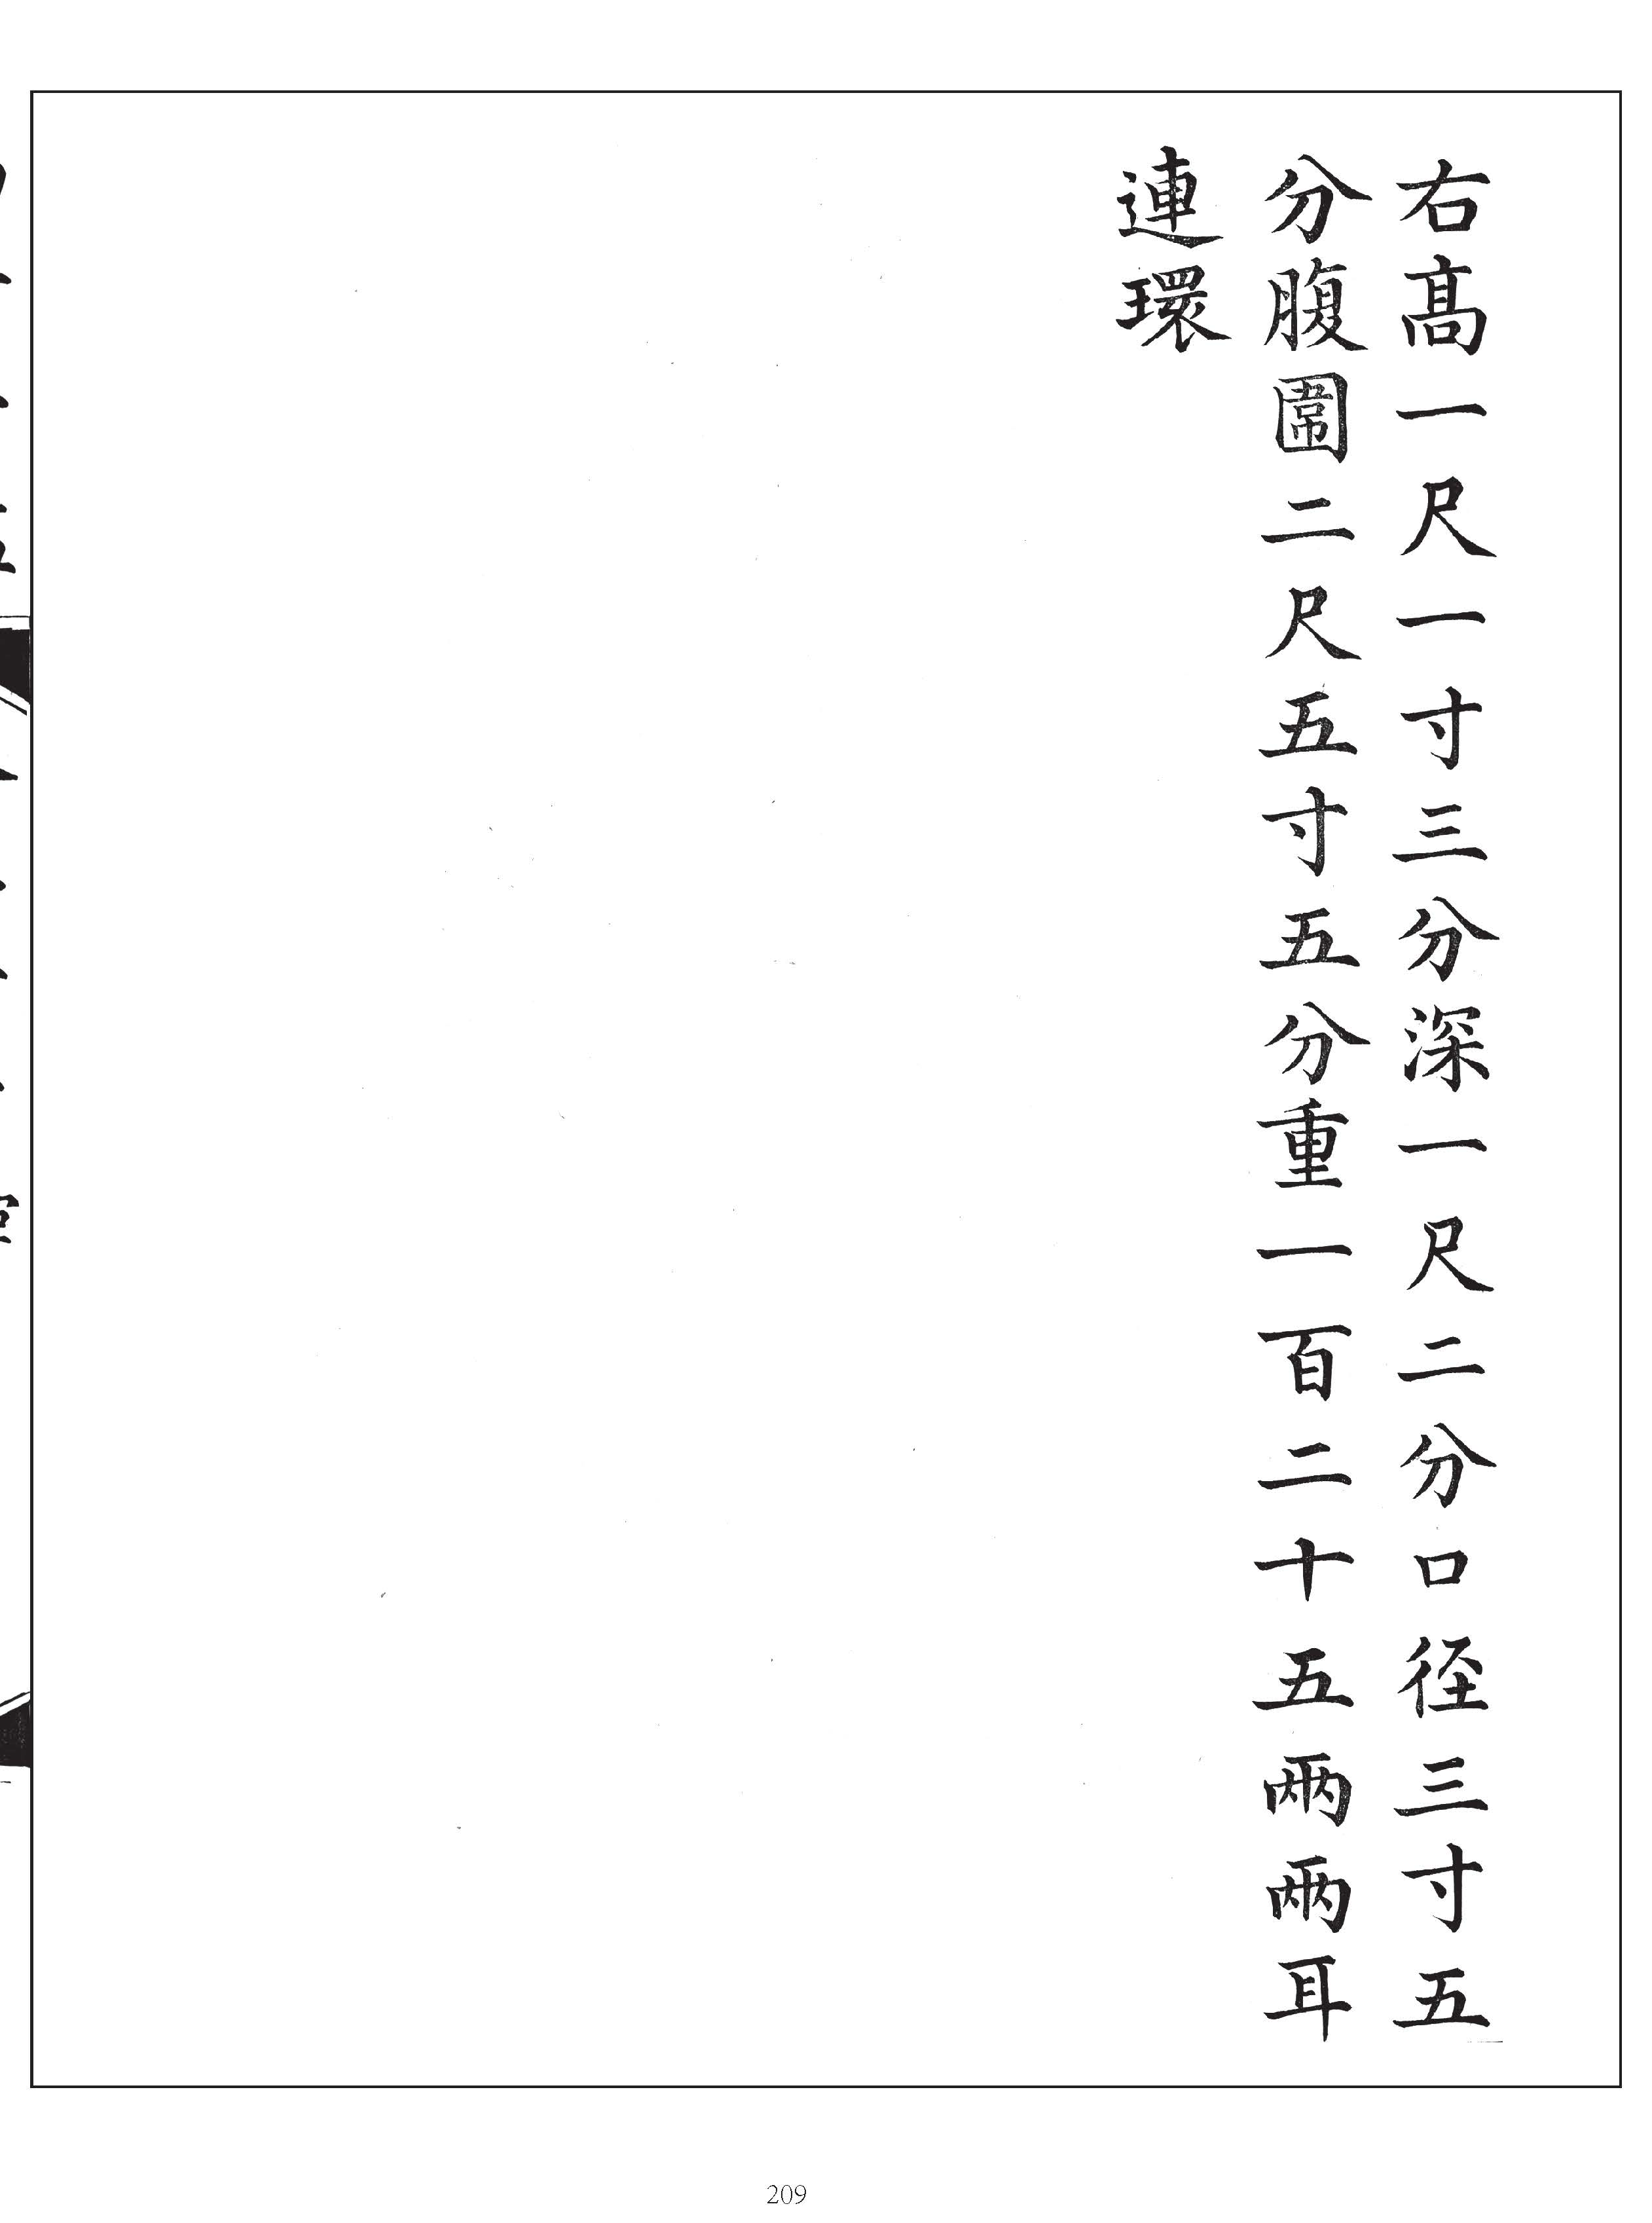 右髙一尺一寸三分深一尺二分口径三寸五
分腹圍二尺五寸五分重一百二十五兩兩耳
連環
209